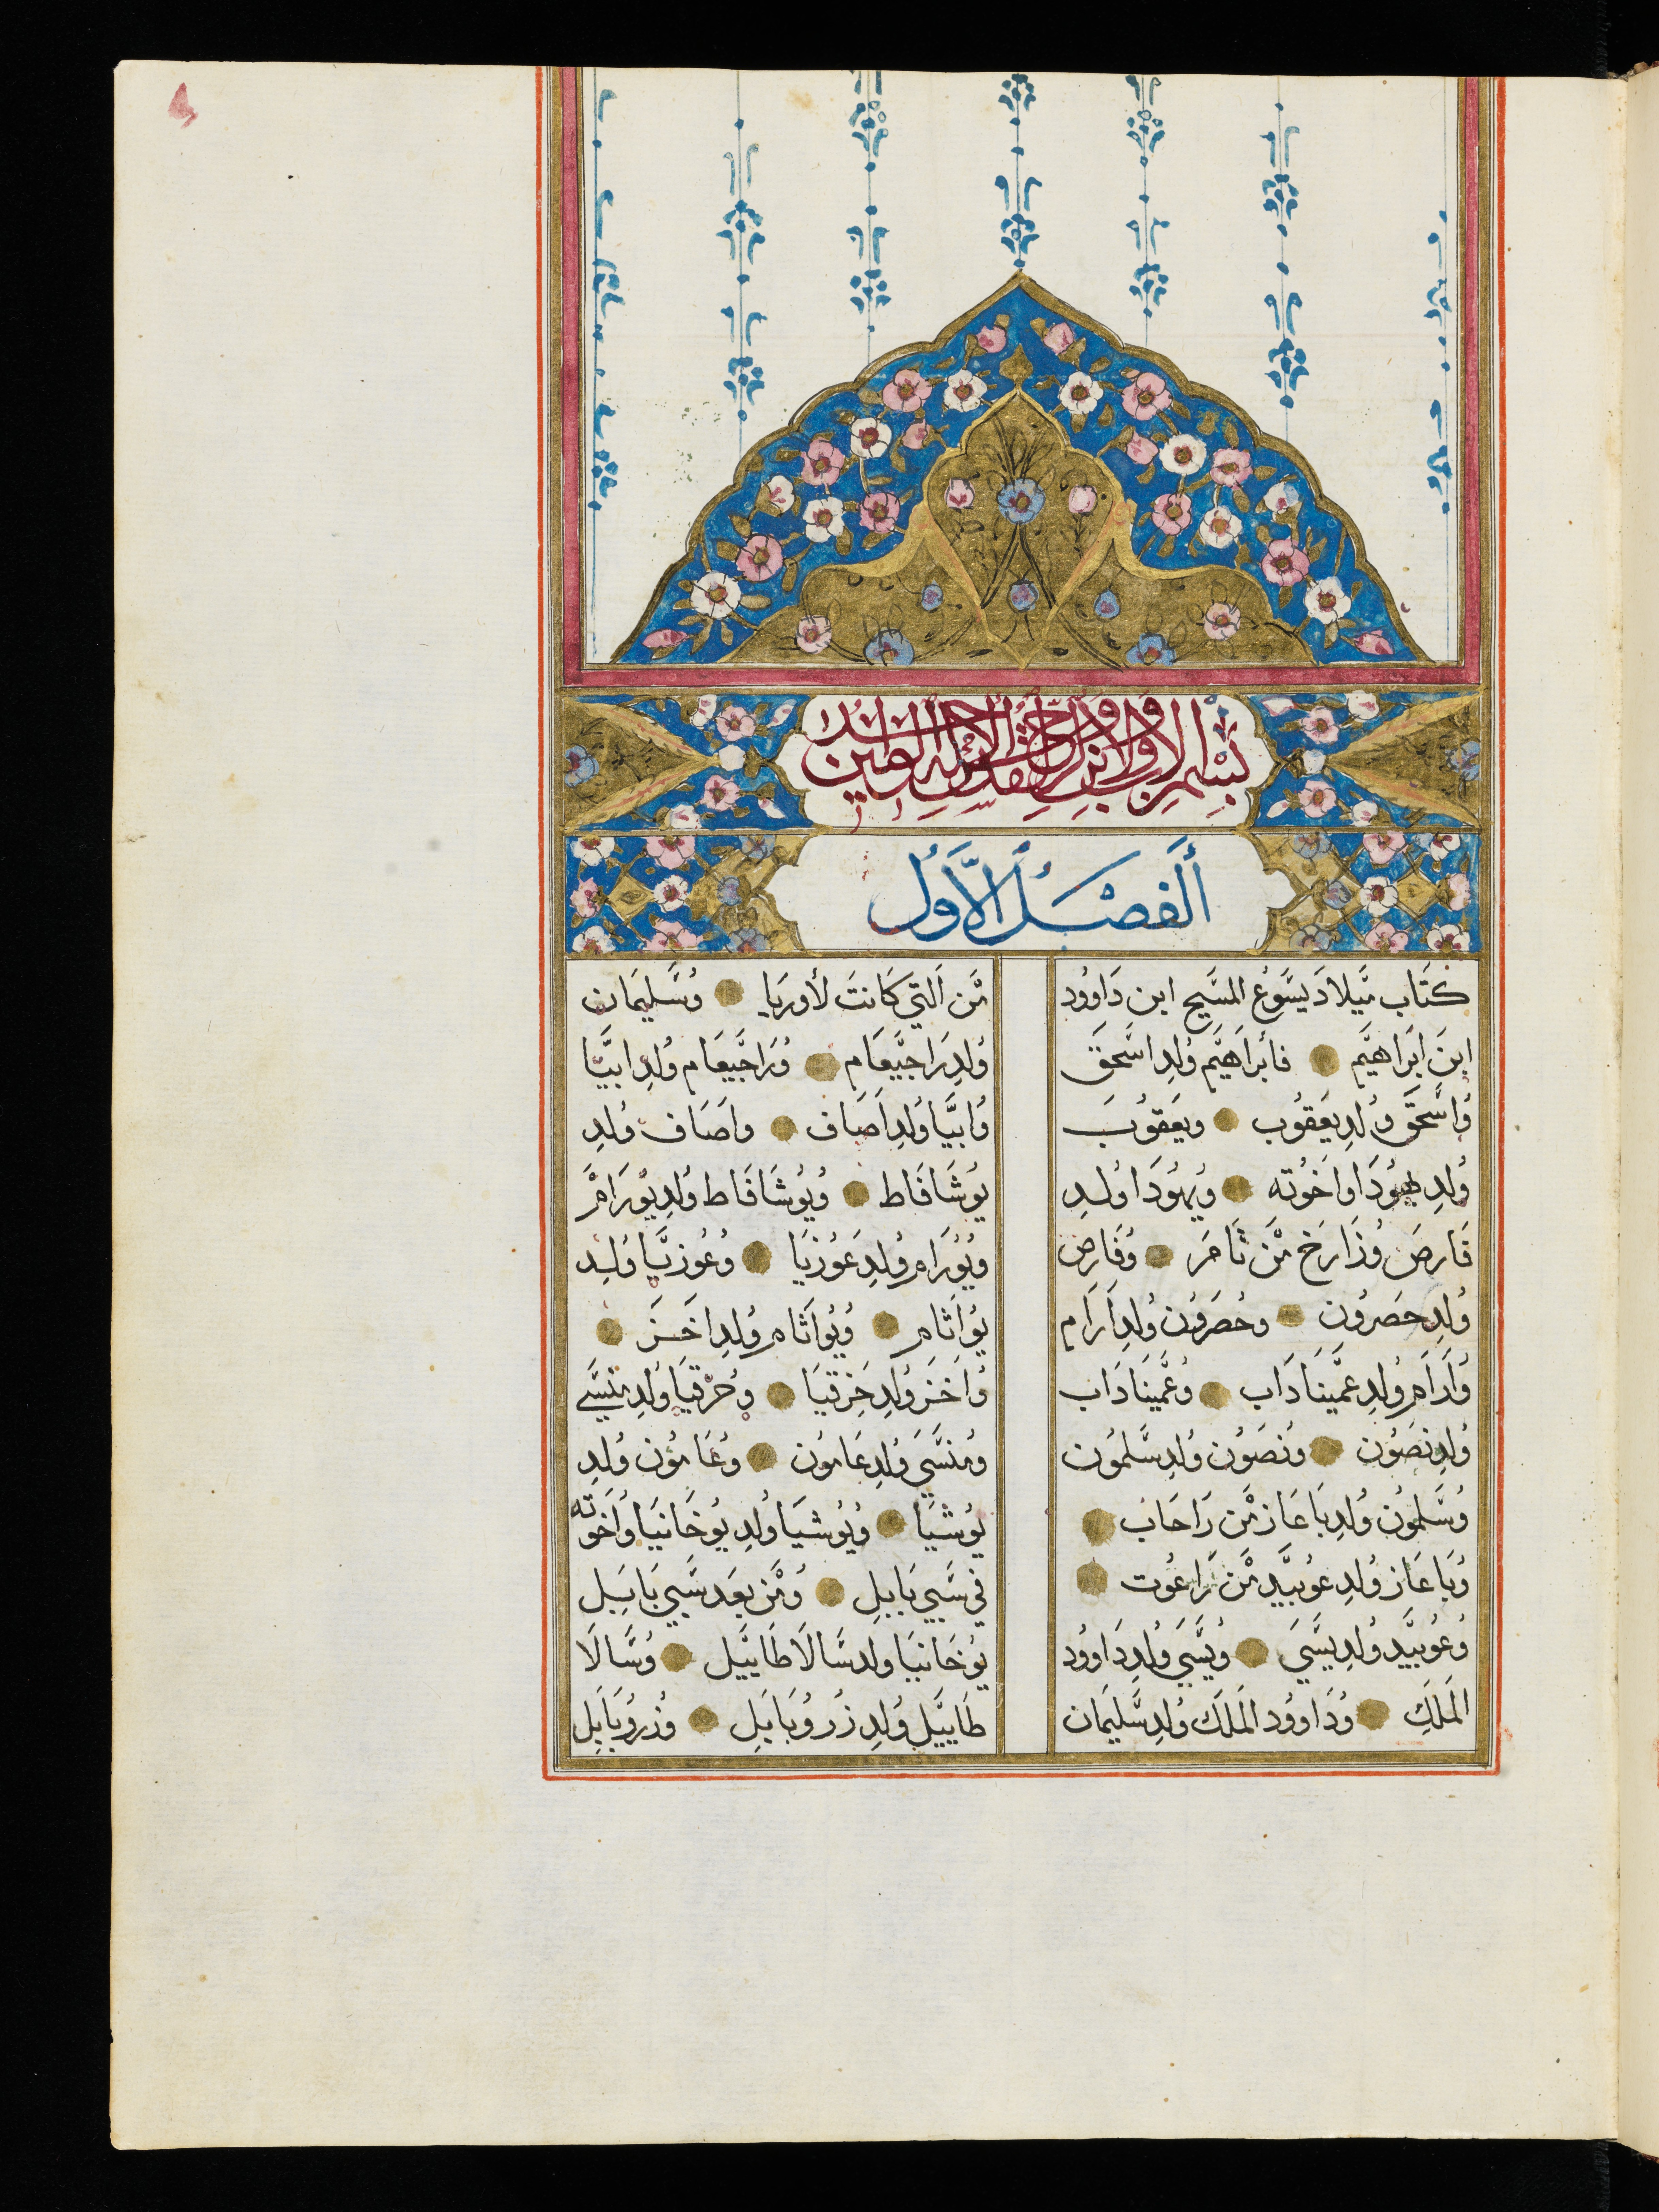 بسم الاب والابن والروح القدس الاله الواحد امين
ألفصل الأول
كتاب ميلاد يسوع المسيح ابن داوود
ابن ابراهيم فأبراهيم ولد اسحق
واسحق ولد يعقوب ويعقوب
ولد يهودا واخوته ويهودا ولد
فارص وزارخ من ثامر وفارص
ولد حصرون وحصرون ولد آرام
وآرام ولد عميناداب وعميناداب
ولد نصون ونصون ولد سلمون
وسلمون ولد باعاز من راحاب
وباعاز ولد عوبيد من راعوت
وعوبيد ولد يسي ويسي ولد داوود
الملك وداوود الملك ولد سليمان
من التي كانت لأوريا وسليمان
ولد راجيعام وراجيعام ولد ابيا
وابيا ولد آصاف واصاف ولد
يوشافاط ويوشافاط ولد يورام
ويورام ولد عوزيا وعوزيا ولد
يواثام ويواثام ولد اخز
واخز ولد حزقيا وحزقيا ولد منسي
ومنسي ولد عامون وعامون ولد
يوشيا ويوشيا ولد يوخانيا واخوته
في سبي بابل ومن بعد سبي بابل
يوخانيا ولد سالاطاييل وسالا
طاييل ولد زروبابل وزروبابل